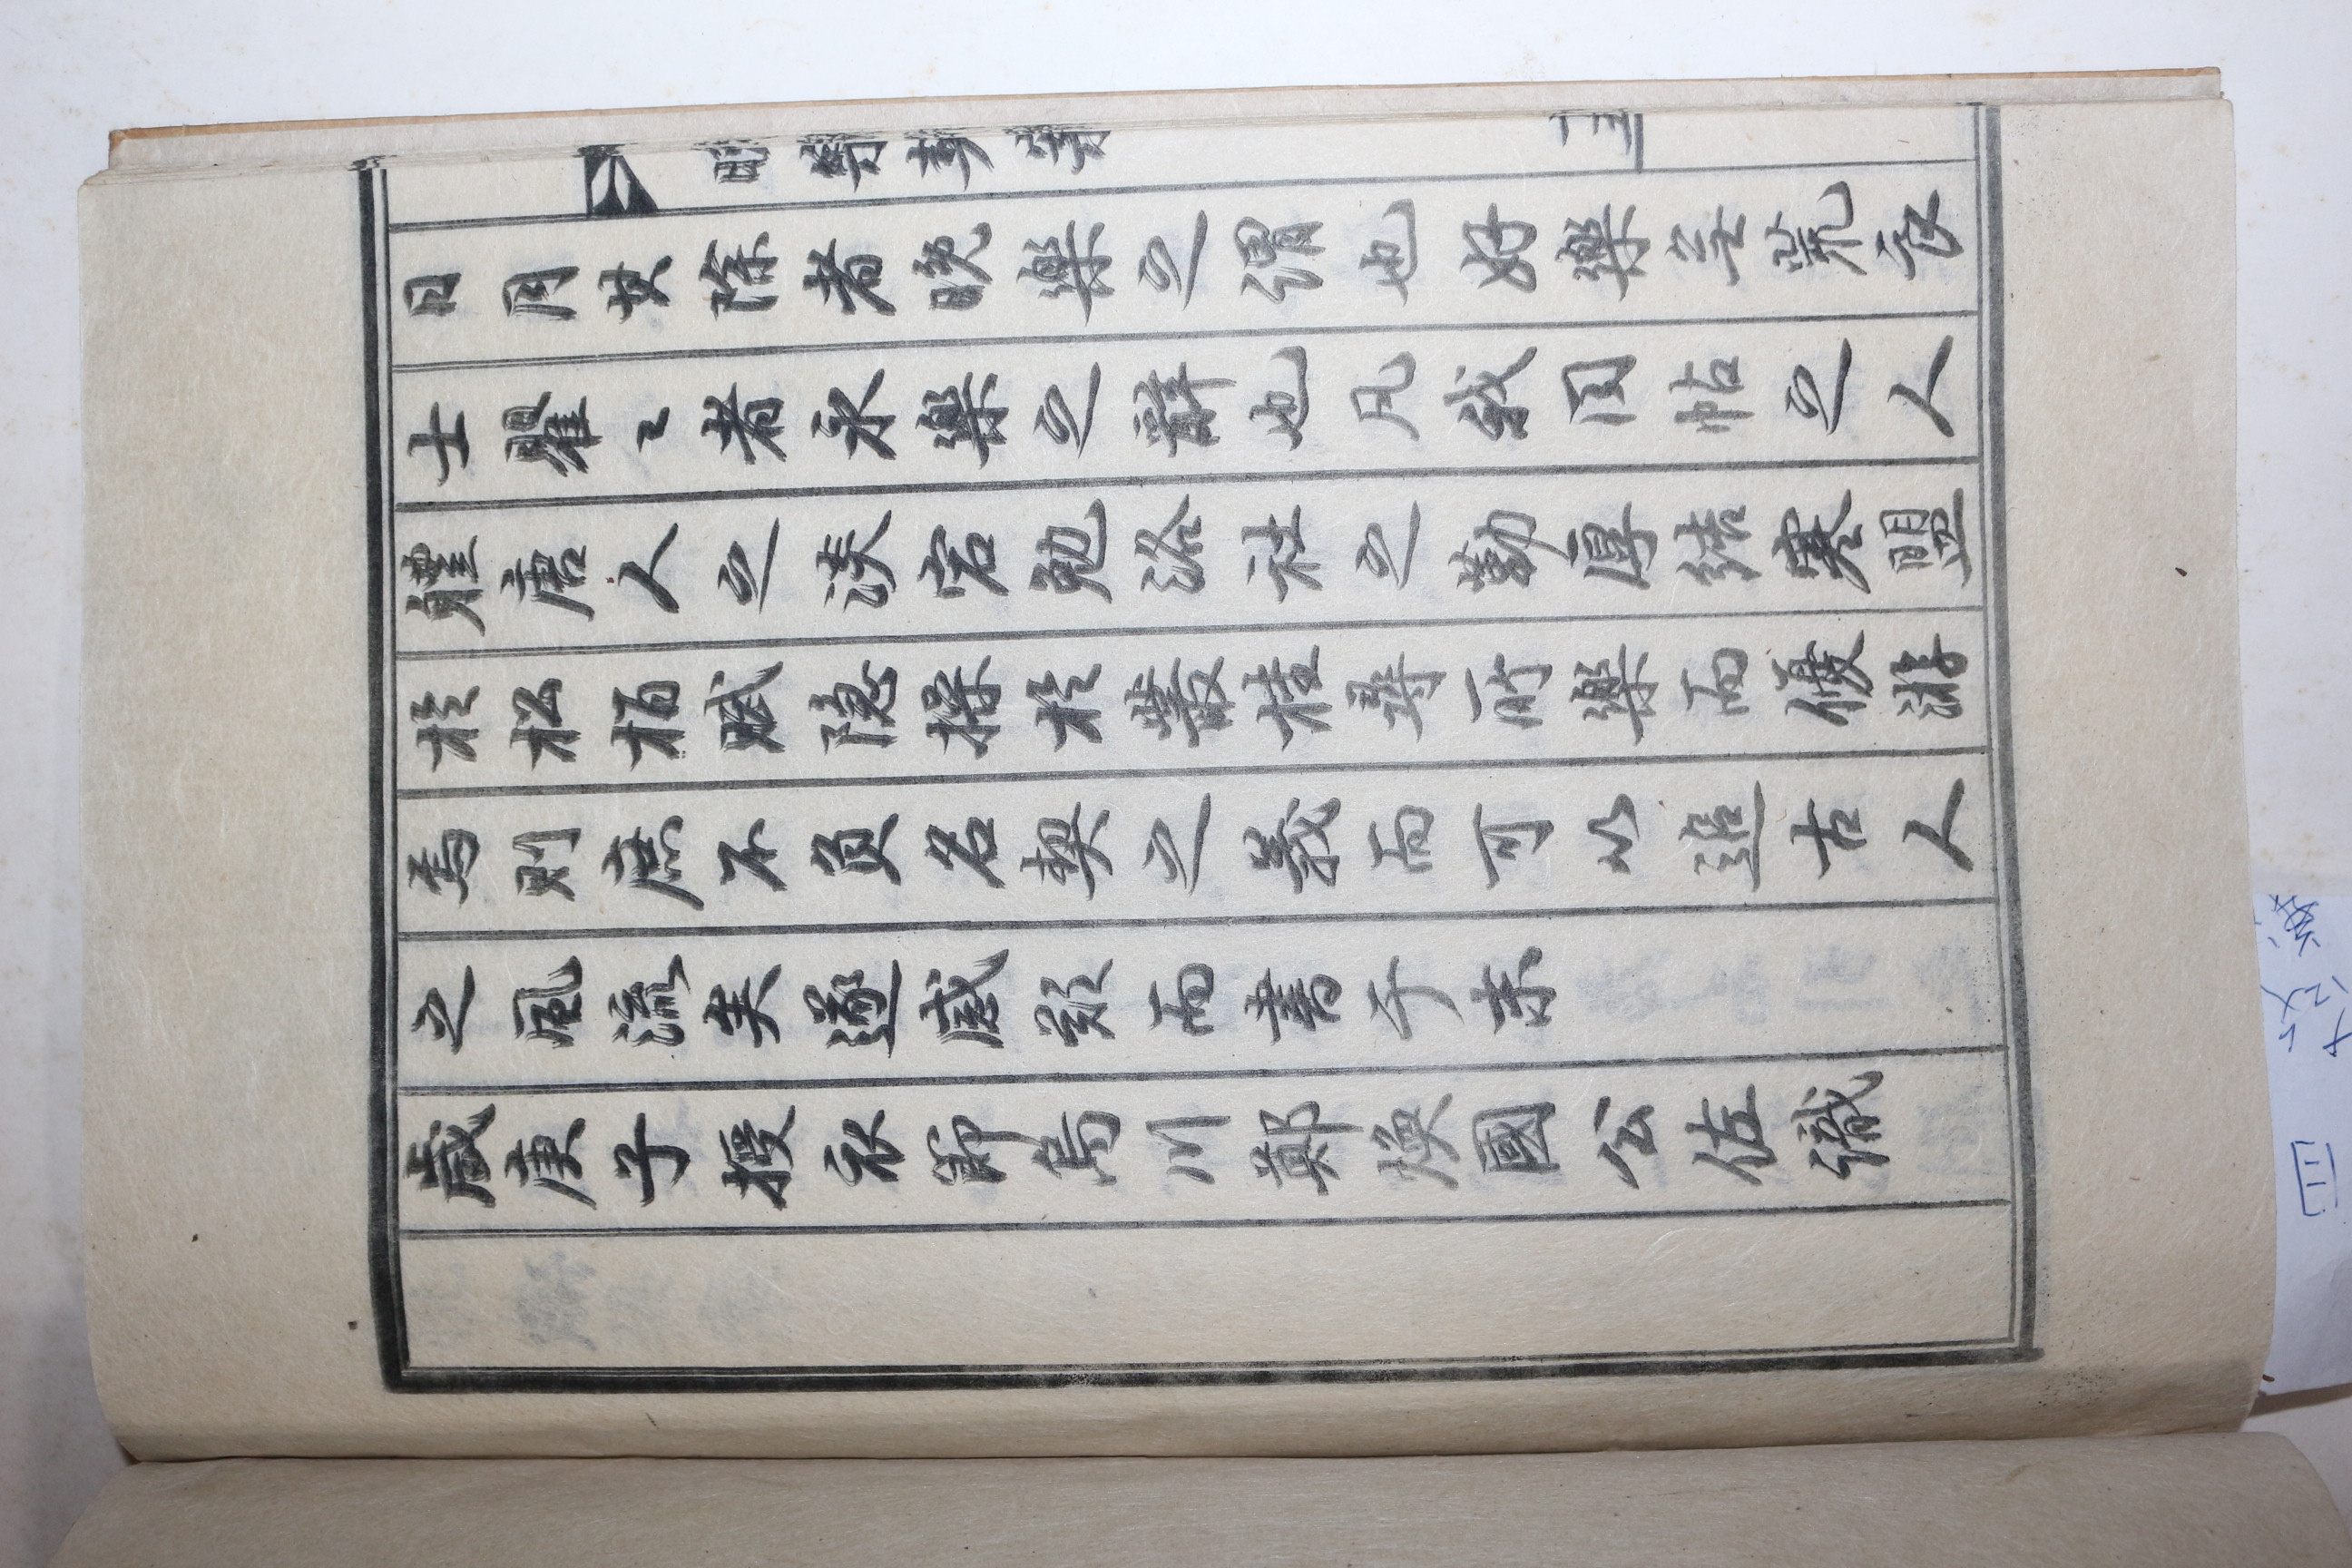 日月其除者晩樂之謂也好樂無荒良
士瞿〻者永樂之辭也凡我同帖之人
軆唐人之淡宕勉洛社之勤厚結寒盟
於松栢賦隐操於叢桂尋所樂而優游
焉則庶不負名契之義而可以追古人
之風流矣遂感歎而書于末
歲庚子授衣節烏川鄭煥國公佐識